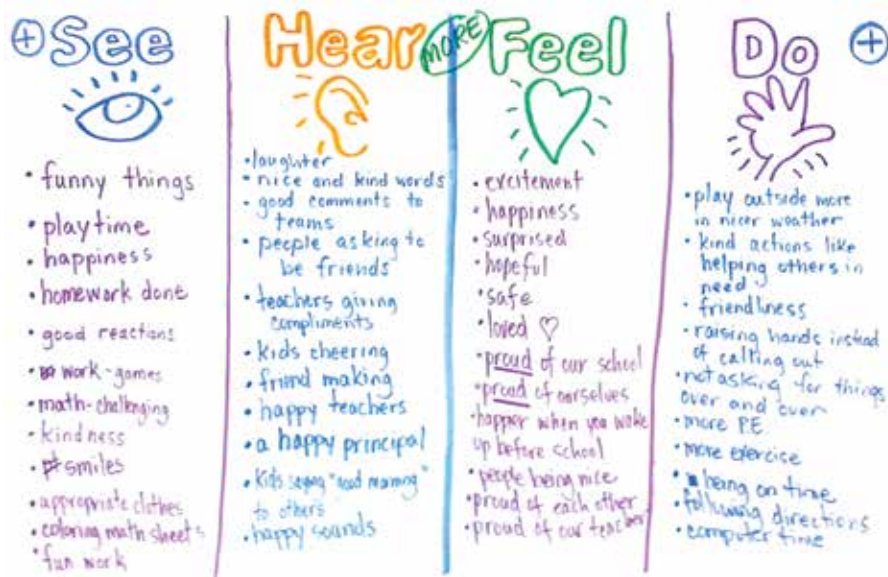 + See
Hear
MORE
Feel
Do +
• funny things
• playtime
• happiness
• homework done
• good reactions
• work-games
• math-challenging
• kindness
• smiles
• appropriate clothes
• coloring math sheets
• fun work
• laughter
• nice and kind words
• good comments to
teams
• people asking to
be friends
• teachers giving
compliments
• kids cheering
• friend making
• happy teachers
• a happy principal
• kids saying "good morning"
to others
• happy sounds
• excitement
• happiness
• surprised
• hopeful
• safe
• loved ♡
• proud of our school
• proud of ourselves
• happier when you wake
up before school
• people being nice
• proud of each other
• proud of our teacher
• play outside more
in nicer weather
• kind actions like
helping others in
need
• friendliness
• raising hands instead
of calling out
• not asking for things
over and over
• more PE
• more exercise
• being on time
• following directions
• computer time